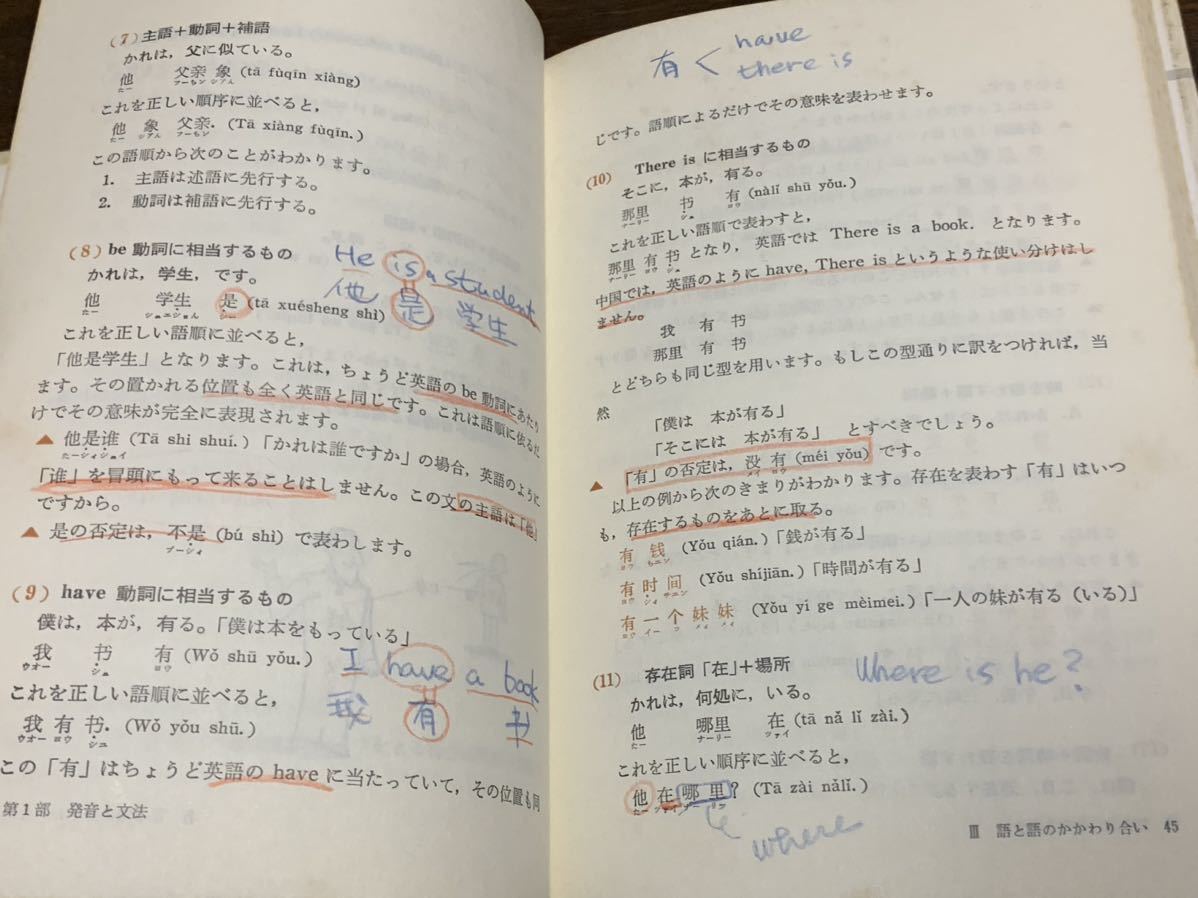 (7) 主語＋動詞＋補語
かれは，父に似ている。
他 父亲 象 (tā fùqīn xiàng)
たー フーもン シアん
これを正しい順序に並べると，
他 象 父亲. (Tā xiàng fùqīn.)
たー シアん フーもン
この語順から次のことがわかります。
1. 主語は述語に先行する。
2. 動詞は補語に先行する。
(8) be 動詞に相当するもの
かれは，学生，です。
他 学生 是 (tā xuésheng shì)
He is a student
他 是 学生
これを正しい語順に並べると，
「他是学生」となります。これは，ちょうど英語の be 動詞にあたり
ます。その置かれる位置も全く英語と同じです。これは語順に依るだ
けでその意味が完全に表現されます。
▲ 他是谁 (Tā shi shuí.)「かれは誰ですか」の場合，英語のように
たーシィシュイ
「谁」を冒頭にもって来ることはしません。この文の主語は「他」
ですから。
▲ 是の否定は，不是 (bú shì) で表わします。
プーシィ
(9) have 動詞に相当するもの
僕は，本が，有る。「僕は本をもっている」
我 书 有 (Wǒ shū yǒu.)
ウオー シュ ヨウ
I have a book
我 有 书
これを正しい語順に並べると，
我 有 书. (Wǒ yǒu shū.)
ウオー ヨウ シュ
この「有」はちょうど英語の have に当たっていて，その位置も同
第1部 発音と文法
有 < have
there is
じです。語順によるだけでその意味を表わせます。
(10) There is に相当するもの
そこに，本が，有る。
那里 书 有 (nàlǐ shū yǒu.)
ナーリー シュ ヨウ
これを正しい語順で表わすと，
那里 有 书 となり，英語では There is a book. となります。
ナーリー ヨウ シュ
中国では，英語のように have, There is というような使い分けはし
ません。
我 有 书
那里 有 书
とどちらも同じ型を用います。もしこの型通りに訳をつければ，当
然
「僕は 本が有る」
「そこには 本が有る」 とすべきでしょう。
▲ 「有」の否定は，没有 (méi yǒu) です。
メイ ヨウ
以上の例から次のきまりがわかります。存在を表わす「有」はいつ
も，存在するものをあとに取る。
有 钱 (Yǒu qián.)「銭が有る」
ヨウ ちエン
有 时 间 (Yǒu shíjiān.)「時間が有る」
有 一 个 妹 妹 (Yǒu yí ge mèimei.)「一人の妹が有る（いる）」
(11) 存在詞「在」＋場所
Where is he?
かれは，何処に，いる。
他 哪里 在 (tā nǎ lǐ zài.)
たー ナーリー ツァイ
これを正しい順序に並べると，
他 在 哪 里? (Tā zài nǎlǐ.)
where
Ⅲ 語と語のかかわり合い 45